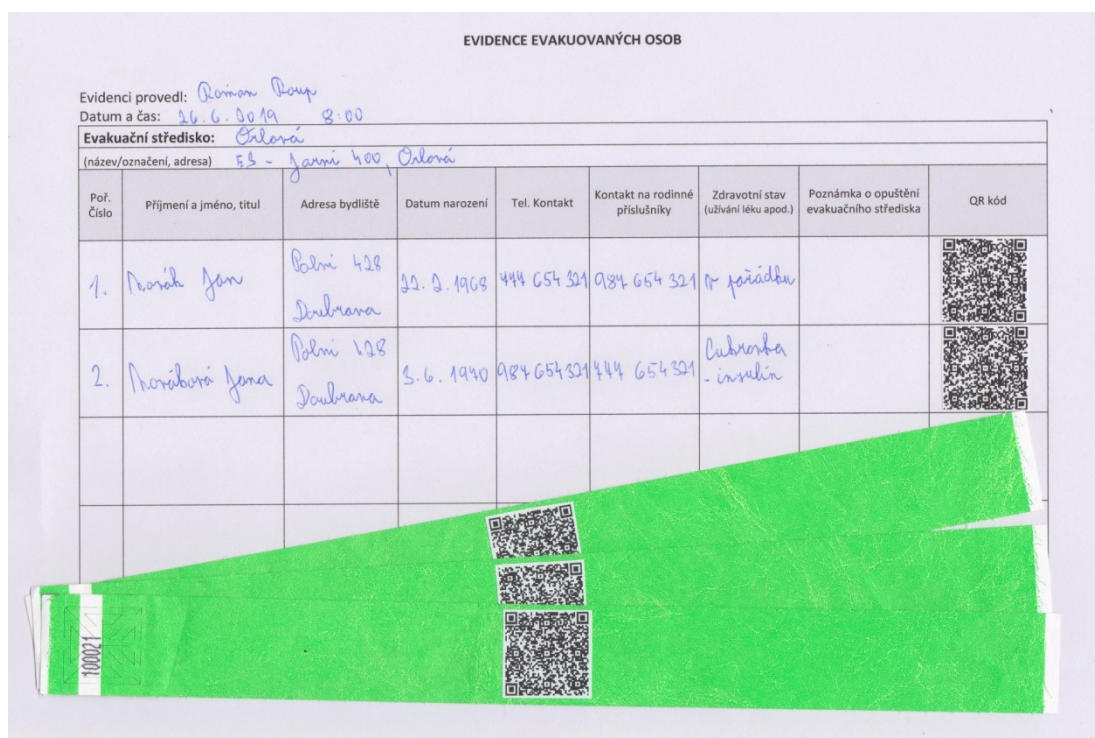 EVIDENCE EVAKUOVANÝCH OSOB
Evidenci provedl: Roman Poup
Datum a čas: 26. 6. 2019 8:00
Evakuační středisko: Orlová
(název/označení, adresa) ES - Jarní 400, Orlová
Poř. Číslo
Příjmení a jméno, titul
Adresa bydliště
Datum narození
Tel. Kontakt
Kontakt na rodinné příslušníky
Zdravotní stav (užívání léku apod.)
Poznámka o opuštění evakuačního střediska
QR kód
1. Novák Jan
Polní 428
Doubrava
22. 2. 1968
777 654 321
987 654 321
v pořádku
2. Nováková Jana
Polní 428
Doubrava
3. 6. 1970
987 654 321
777 654 321
Cukrovka
- insulín
100021